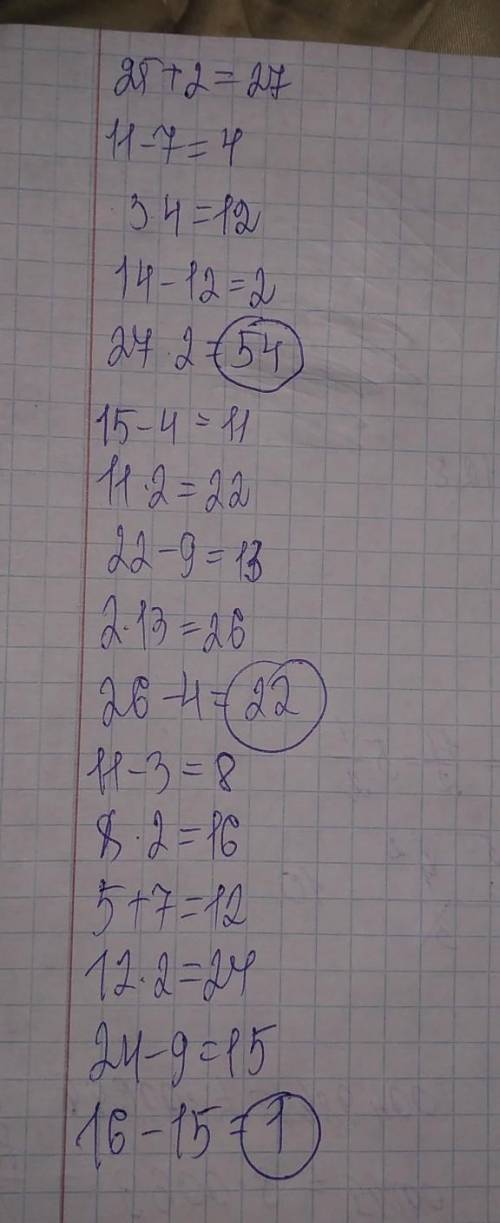 25+2=27
11-7=4
3 4=12
14-12=2
27·2=54
15-4=11
11·2=22
22-9=13
2·13=26
26-4=22
11-3=8
8·2=16
5+7=12
12·2=24
24-9=15
16-15=1